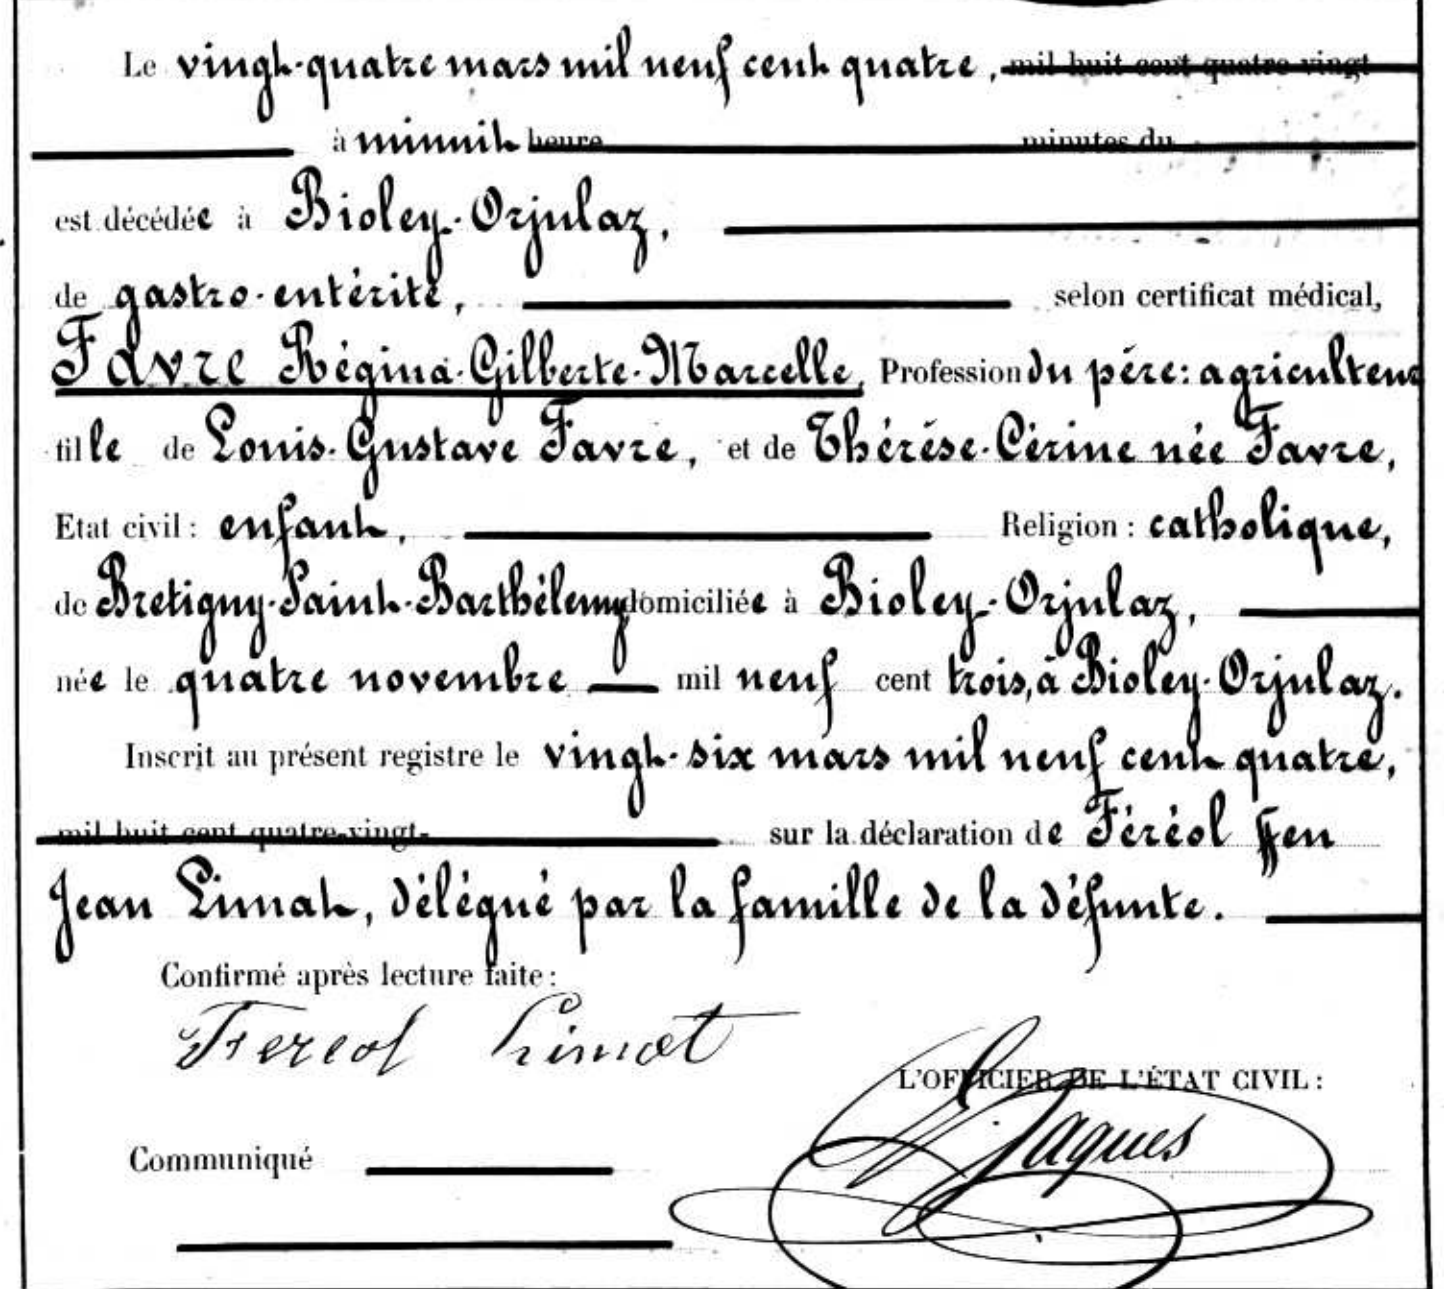 Le vingt-quatre mars mil neuf cent quatre, mil huit cent quatre-vingt
à minuit heure minutes du
est décédée à Bioley-Orjulaz,
de gastro-entérite, selon certificat médical,
Favre Régina-Gilberte-Marcelle, Profession du père: agriculteur
fille de Louis-Gustave Favre, et de Thérèse-Cérine née Favre,
Etat civil: enfant, Religion: catholique,
de Bretigny-Saint-Barthélemy, domiciliée à Bioley-Orjulaz,
née le quatre novembre mil neuf cent trois, à Bioley-Orjulaz.
Inscrit au présent registre le vingt-six mars mil neuf cent quatre,
mil huit cent quatre-vingt- sur la déclaration de Féréol ffeu
Jean Limat, délégué par la famille de la défunte.
Confirmé après lecture faite:
Fereol Limat
L'OFFICIER DE L'ÉTAT CIVIL:
Jaques
Communiqué